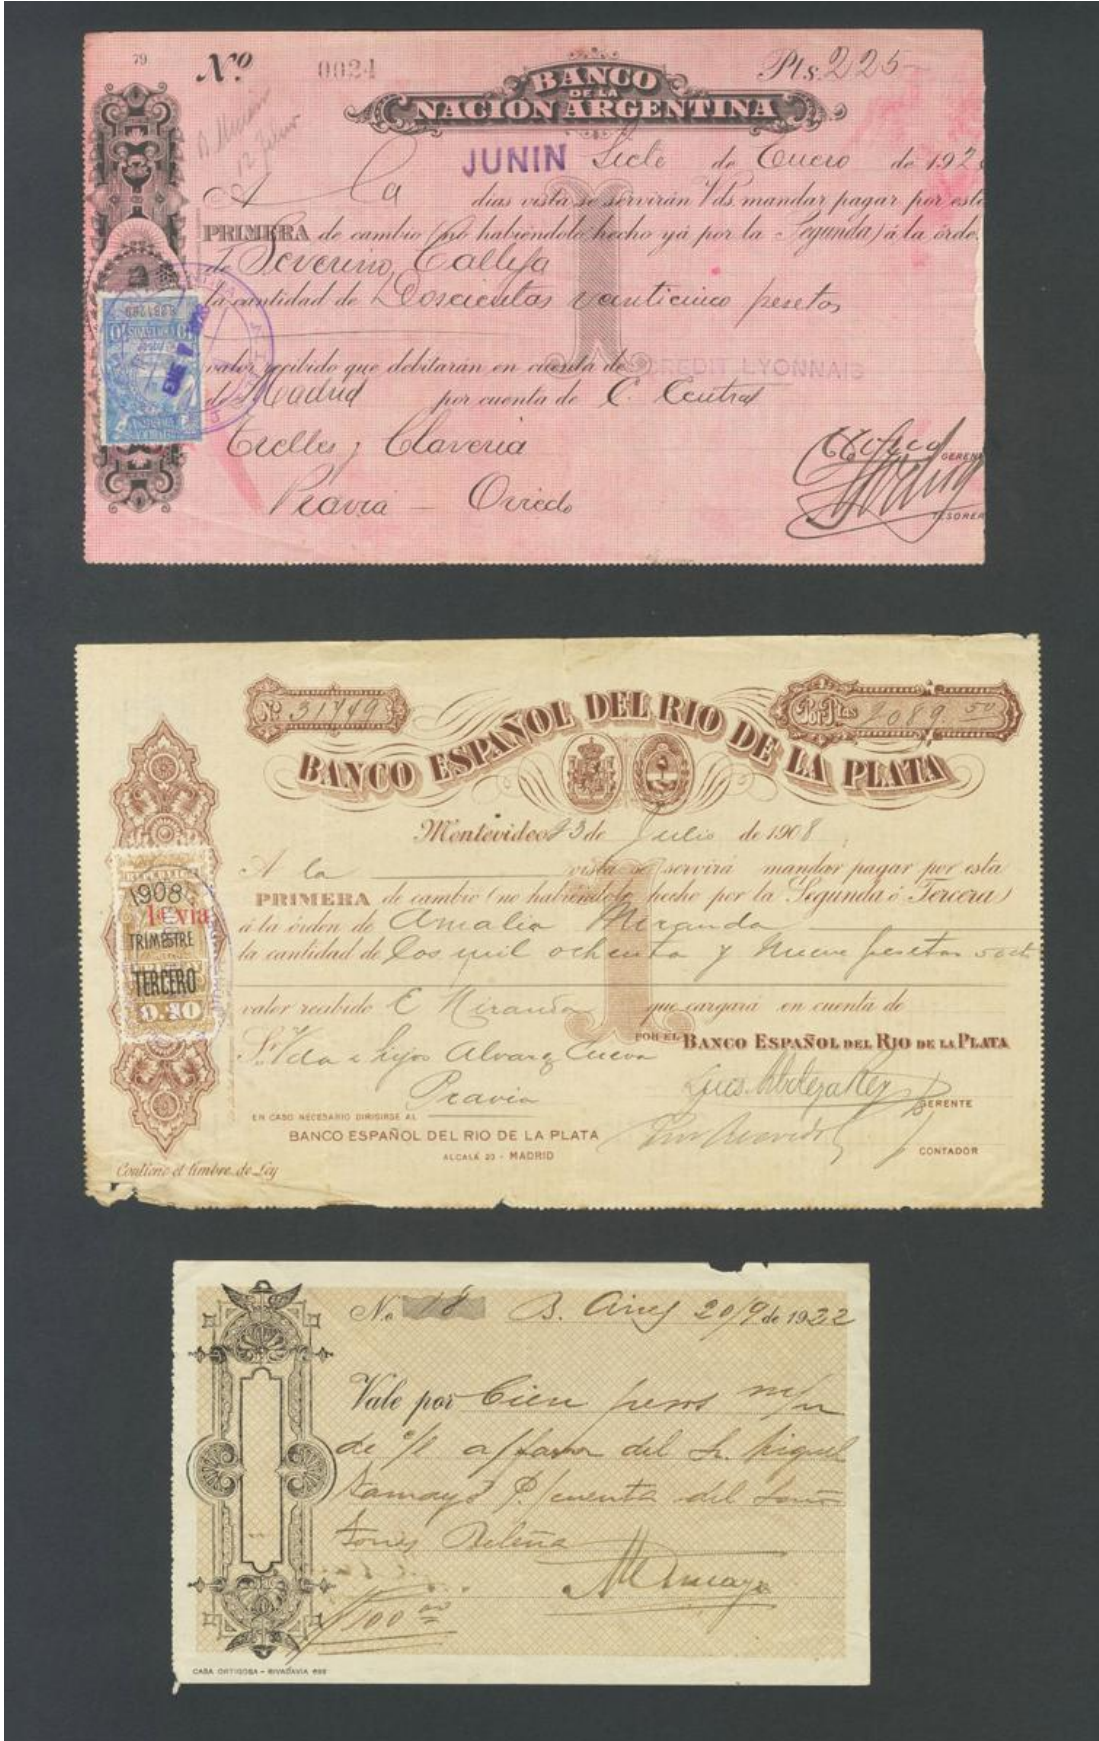 79
Nº 0024
Pts. 225-
BANCO
DE LA
NACIÓN ARGENTINA
JUNIN Siete de Enero de 192
A la días vista se servirán Vds. mandar pagar por esta
PRIMERA de cambio (no habiéndolo hecho yá por la Segunda) á la orde
de Severino Calleja
la cantidad de Doscientas veinticinco pesetas
valor recibido que debitarán en cuenta de CREDIT LYONNAIS
de Madrid por cuenta de C. Central
Trelles y Claveria
GEREN
Pravia - Oviedo
TESORER
Nº 31749
Por Ptas 2089.50
BANCO ESPAÑOL DEL RIO DE LA PLATA
Montevideo 23 de Julio de 1908
A la vista se servirá mandar pagar por esta
PRIMERA de cambio (no habiéndolo hecho por la Segunda ó Tercera)
á la órden de Amalia Miranda
la cantidad de Dos mil ochenta y nueve pesetas 50 cts
valor recibido E Miranda que cargará en cuenta de
POR EL BANCO ESPAÑOL DEL RIO DE LA PLATA
Sr. Vda e hijos Alvarez Cueva
Pravia
GERENTE
EN CASO NECESARIO DIRIGIRSE AL
BANCO ESPAÑOL DEL RIO DE LA PLATA
ALCALÁ 23 - MADRID
CONTADOR
Contiene el timbre de Ley
1908
1ª via
TRIMESTRE
TERCERO
0.20
No. 18 B. Aires 20/9 de 1922
Vale por Cien pesos m/n
de c/l a/favor del Sr. Miguel
Tamayo P./cuenta del Señor
Torres
$100 00
CASA ORTIGOSA - RIVADAVIA 699